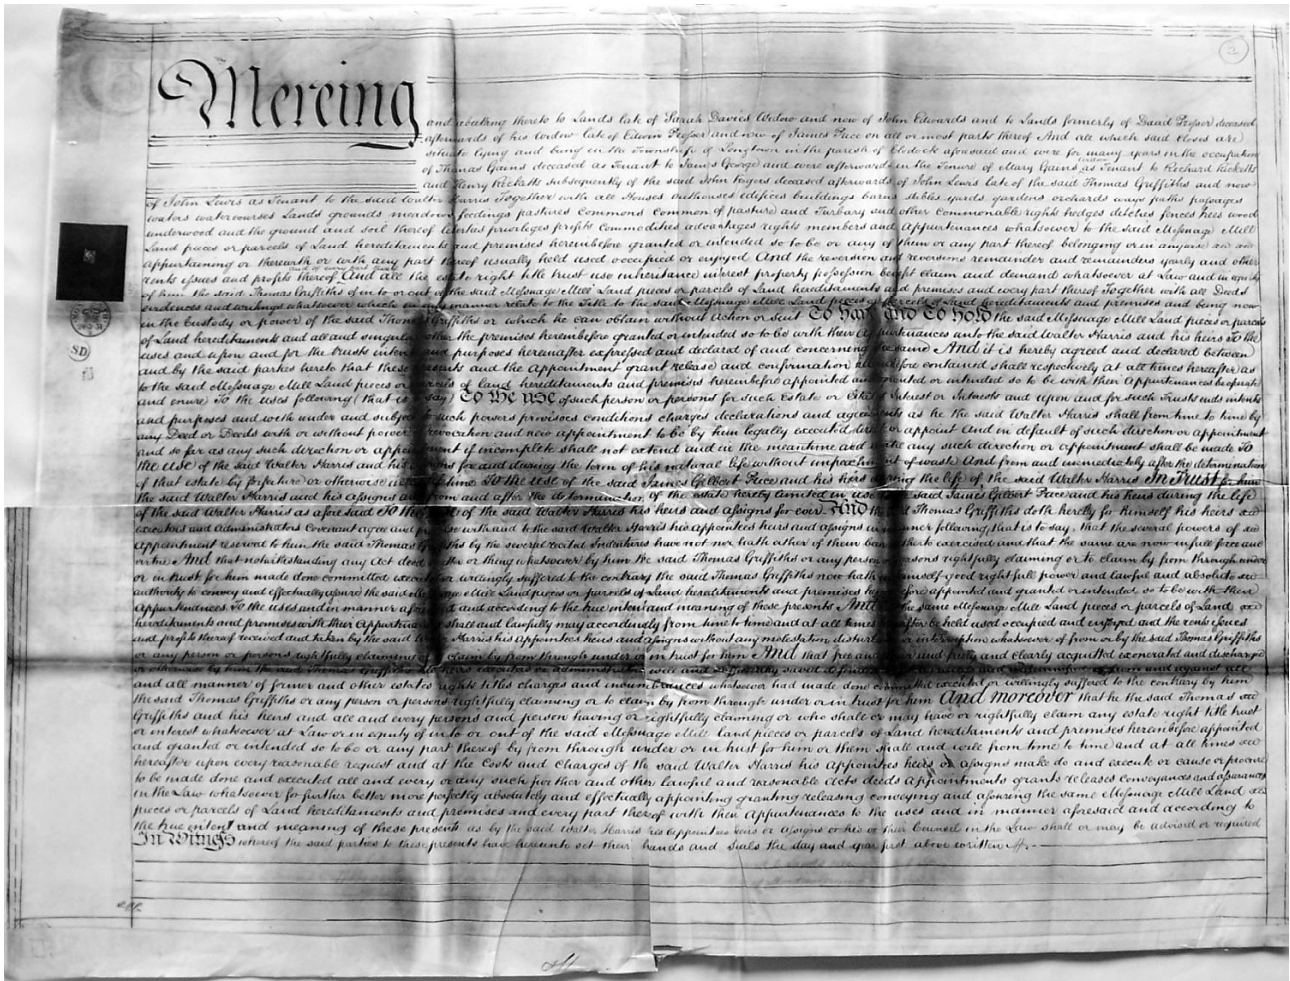 Mereing
and abutting thereto to Lands late of Sarah Davies Widow and now of John Edwards and to Lands formerly of David Prosser deceased
afterwards of his Widow late of Edwin Prosser and now of James Pace on all or most parts thereof And all which said closes are
situate lying and being in the Township of Longtown in the parish of Clodock aforesaid and were for many years in the occupation
of Thomas Gains deceased as Tenant to James George and were afterwards in the Tenure of Mary Gains widow as Tenant to Richard Ricketts
and Henry Ricketts subsequently of the said John Rogers deceased afterwards of John Lewis late of the said Thomas Griffiths and now
of John Lewis as Tenant to the said Walter Harris Together with all Houses outhouses edifices buildings barns stables yards gardens orchards ways paths passages
waters watercourses Lands grounds meadows feedings pastures Commons Common of pasture and Turbary and other Commonable rights hedges ditches fences trees wood
underwood and the ground and soil thereof liberties privileges profits Commodities advantages rights members and Appurtenances whatsoever to the said Messuage Mill
Land pieces or parcels of Land hereditaments and premises hereinbefore granted or intended so to be or any of them or any part thereof belonging or in anywise
appertaining or therewith or with any part thereof usually held used occupied or enjoyed And the reversion and reversions remainder and remainders yearly and other
rents issues and profits thereof and of every part thereof And all the estate right title trust use inheritance interest property possession benefit claim and demand whatsoever at Law and in equity
of him the said Thomas Griffiths of in to or out of the said Messuage Mill Land pieces or parcels of Land hereditaments and premises and every part thereof Together with all Deeds
evidences and writings whatsoever which in any manner relate to the Title to the said Messuage Mill Land pieces or parcels of Land hereditaments and premises and being now
in the Custody or power of the said Thomas Griffiths or which he can obtain without Action or Suit To Have and To Hold the said Messuage Mill Land pieces or parcels
of Land hereditaments and all and singular other the premises hereinbefore granted or intended so to be with their Appurtenances unto the said Walter Harris and his heirs To the
uses and upon and for the trusts intents and purposes hereinafter expressed and declared of and concerning the same And it is hereby agreed and declared between
and by the said parties hereto that these presents and the Appointment grant release and confirmation hereinbefore contained shall respectively at all times hereafter as
to the said Messuage Mill Land pieces or parcels of land hereditaments and premises hereinbefore appointed and granted or intended so to be with their Appurtenances be operate
and enure To the uses following (that is to say) To the use of such person or persons for such Estate or Estates Interest or Interests and upon and for such Trusts ends intents
and purposes and with under and subject to such powers provisoes conditions charges declarations and agreements as he the said Walter Harris shall from time to time by
any Deed or Deeds with or without power of revocation and new appointment to be by him legally executed direct or appoint And in default of such direction or appointment
and so far as any such direction or appointment if incomplete shall not extend and in the meantime and until any such direction or appointment shall be made To
the use of the said Walter Harris and his assigns for and during the term of his natural life without impeachment of waste And from and immediately after the determination
of that estate by forfeiture or otherwise in his life time To the use of the said James Gilbert Pace and his heirs during the life of the said Walter Harris In Trust for him
the said Walter Harris and his assigns And from and after the determination of the estate hereby limited in use to the said James Gilbert Pace and his heirs during the life
of the said Walter Harris as aforesaid To the use of the said Walter Harris his heirs and assigns for ever And the said Thomas Griffiths doth hereby for himself his heirs
executors and Administrators Covenant agree and promise with and to the said Walter Harris his appointees heirs and assigns in manner following that is to say, that the several powers of
Appointment reserved to him the said Thomas Griffiths by the several recited Indentures have not nor hath either of them been heretofore exercised and that the same are now in full force and
virtue And that notwithstanding any Act deed matter or thing whatsoever by him the said Thomas Griffiths or any person or persons rightfully claiming or to claim by from through under
or in trust for him made done committed executed or willingly suffered to the contrary the said Thomas Griffiths now hath in himself good right full power and lawful and absolute
authority to convey and effectually assure the said Messuage Mill Land pieces or parcels of Land hereditaments and premises hereinbefore appointed and granted or intended so to be with their
Appurtenances To the uses and in manner aforesaid and according to the true intent and meaning of these presents And that the same Messuage Mill Land pieces or parcels of Land
hereditaments and premises with their Appurtenances shall and lawfully may accordingly from time to time and at all times hereafter be held used occupied and enjoyed and the rents issues
and profits thereof received and taken by the said Walter Harris his Appointees heirs and assigns without any molestation disturbance or interruption whatsoever of from or by the said Thomas Griffiths
or any person or persons rightfully claiming or to claim by from through under or in trust for him And that free and clear and freely and clearly acquitted exonerated and discharged
or otherwise by him the said Thomas Griffiths his heirs executors or administrators well and sufficiently saved defended kept harmless and indemnified of from and against all
and all manner of former and other estates rights titles charges and incumbrances whatsoever had made done committed executed or willingly suffered to the contrary by him
the said Thomas Griffiths or any person or persons rightfully claiming or to claim by from through under or in trust for him And moreover that he the said Thomas
Griffiths and his heirs and all and every persons and person having or rightfully claiming or who shall or may have or rightfully claim any estate right title trust
or interest whatsoever at Law or in equity of in to or out of the said Messuage Mill land pieces or parcels of Land hereditaments and premises hereinbefore appointed
and granted or intended so to be or any part thereof by from through under or in trust for him or them Shall and will from time to time and at all times
hereafter upon every reasonable request and at the Costs and Charges of the said Walter Harris his Appointees heirs or assigns make do and execute or cause or procure
to be made done and executed all and every or any such further and other lawful and reasonable Acts deeds Appointments grants releases conveyances and assurances
in the Law whatsoever for further better more perfectly absolutely and effectually appointing granting releasing conveying and assuring the same Messuage Mill Land
pieces or parcels of Land hereditaments and premises and every part thereof with their Appurtenances to the uses and in manner aforesaid and according to
the true intent and meaning of these presents as by the said Walter Harris his appointees heirs or assigns or his or their Counsel in the Law shall or may be advised or required
In Witness whereof the said parties to these presents have hereunto set their hands and seals the day and year first above written